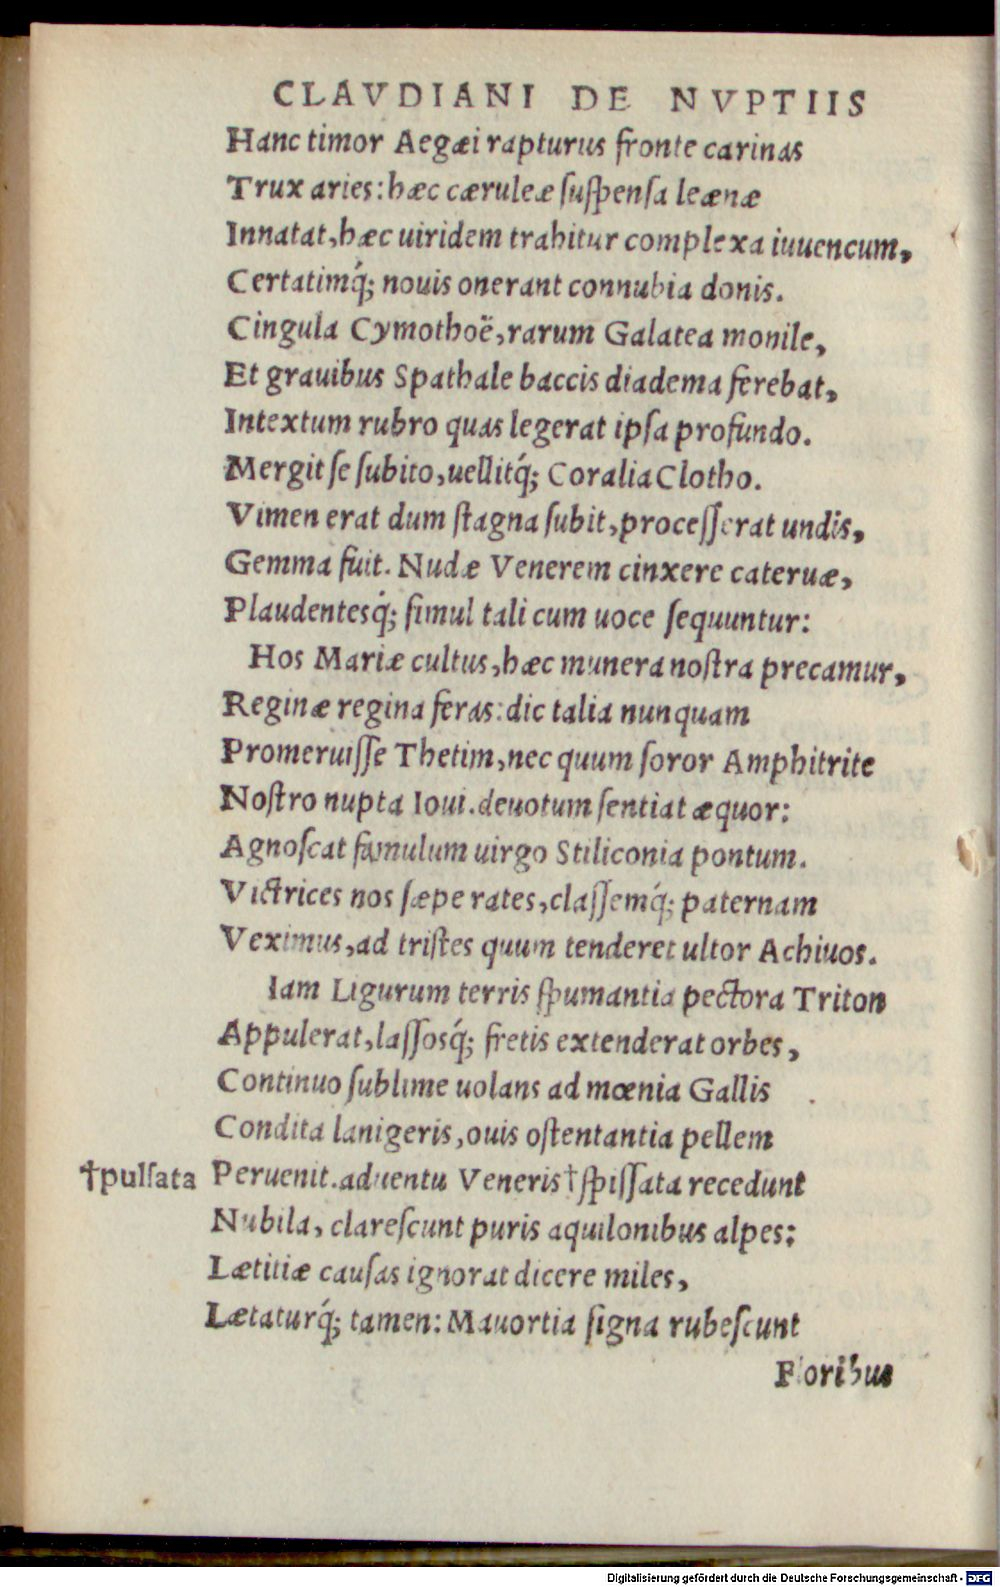 CLAVDIANI DE NVPTIIS
Hanc timor Aegæi rapturus fronte carinas
Trux aries: hæc cæruleæ ſuſpenſa leænæ
Innatat, hæc uiridem trahitur complexa iuuencum,
Certatimq́; nouis onerant connubia donis.
Cingula Cymothoë, rarum Galatea monile,
Et grauibus Spathale baccis diadema ferebat,
Intextum rubro quas legerat ipſa profundo.
Mergit ſe ſubito, uellitq́; Coralia Clotho.
Vimen erat dum ſtagna ſubit, proceſſerat undis,
Gemma fuit. Nudæ Venerem cinxere cateruæ,
Plaudentesq́; ſimul tali cum uoce ſequuntur:
Hos Mariæ cultus, hæc munera noſtra precamur,
Reginæ regina feras: dic talia nunquam
Promeruiſſe Thetim, nec quum ſoror Amphitrite
Noſtro nupta Ioui. deuotum ſentiat æquor:
Agnoſcat famulum uirgo Stiliconia pontum.
Victrices nos ſæpe rates, claſſemq́; paternam
Veximus, ad triſtes quum tenderet ultor Achiuos.
Iam Ligurum terris ſpumantia pectora Triton
Appulerat, laſſosq́; fretis extenderat orbes,
Continuo ſublime uolans ad mœnia Gallis
Condita lanigeris, ouis oſtentantia pellem
†pulſata Peruenit. aduentu Veneris † ſpiſſata recedunt
Nubila, clareſcunt puris aquilonibus alpes:
Lætitiæ cauſas ignorat dicere miles,
Lætaturq́; tamen: Mauortia ſigna rubeſcunt
Floribus
Digitalisierung gefördert durch die Deutsche Forschungsgemeinschaft - DFG